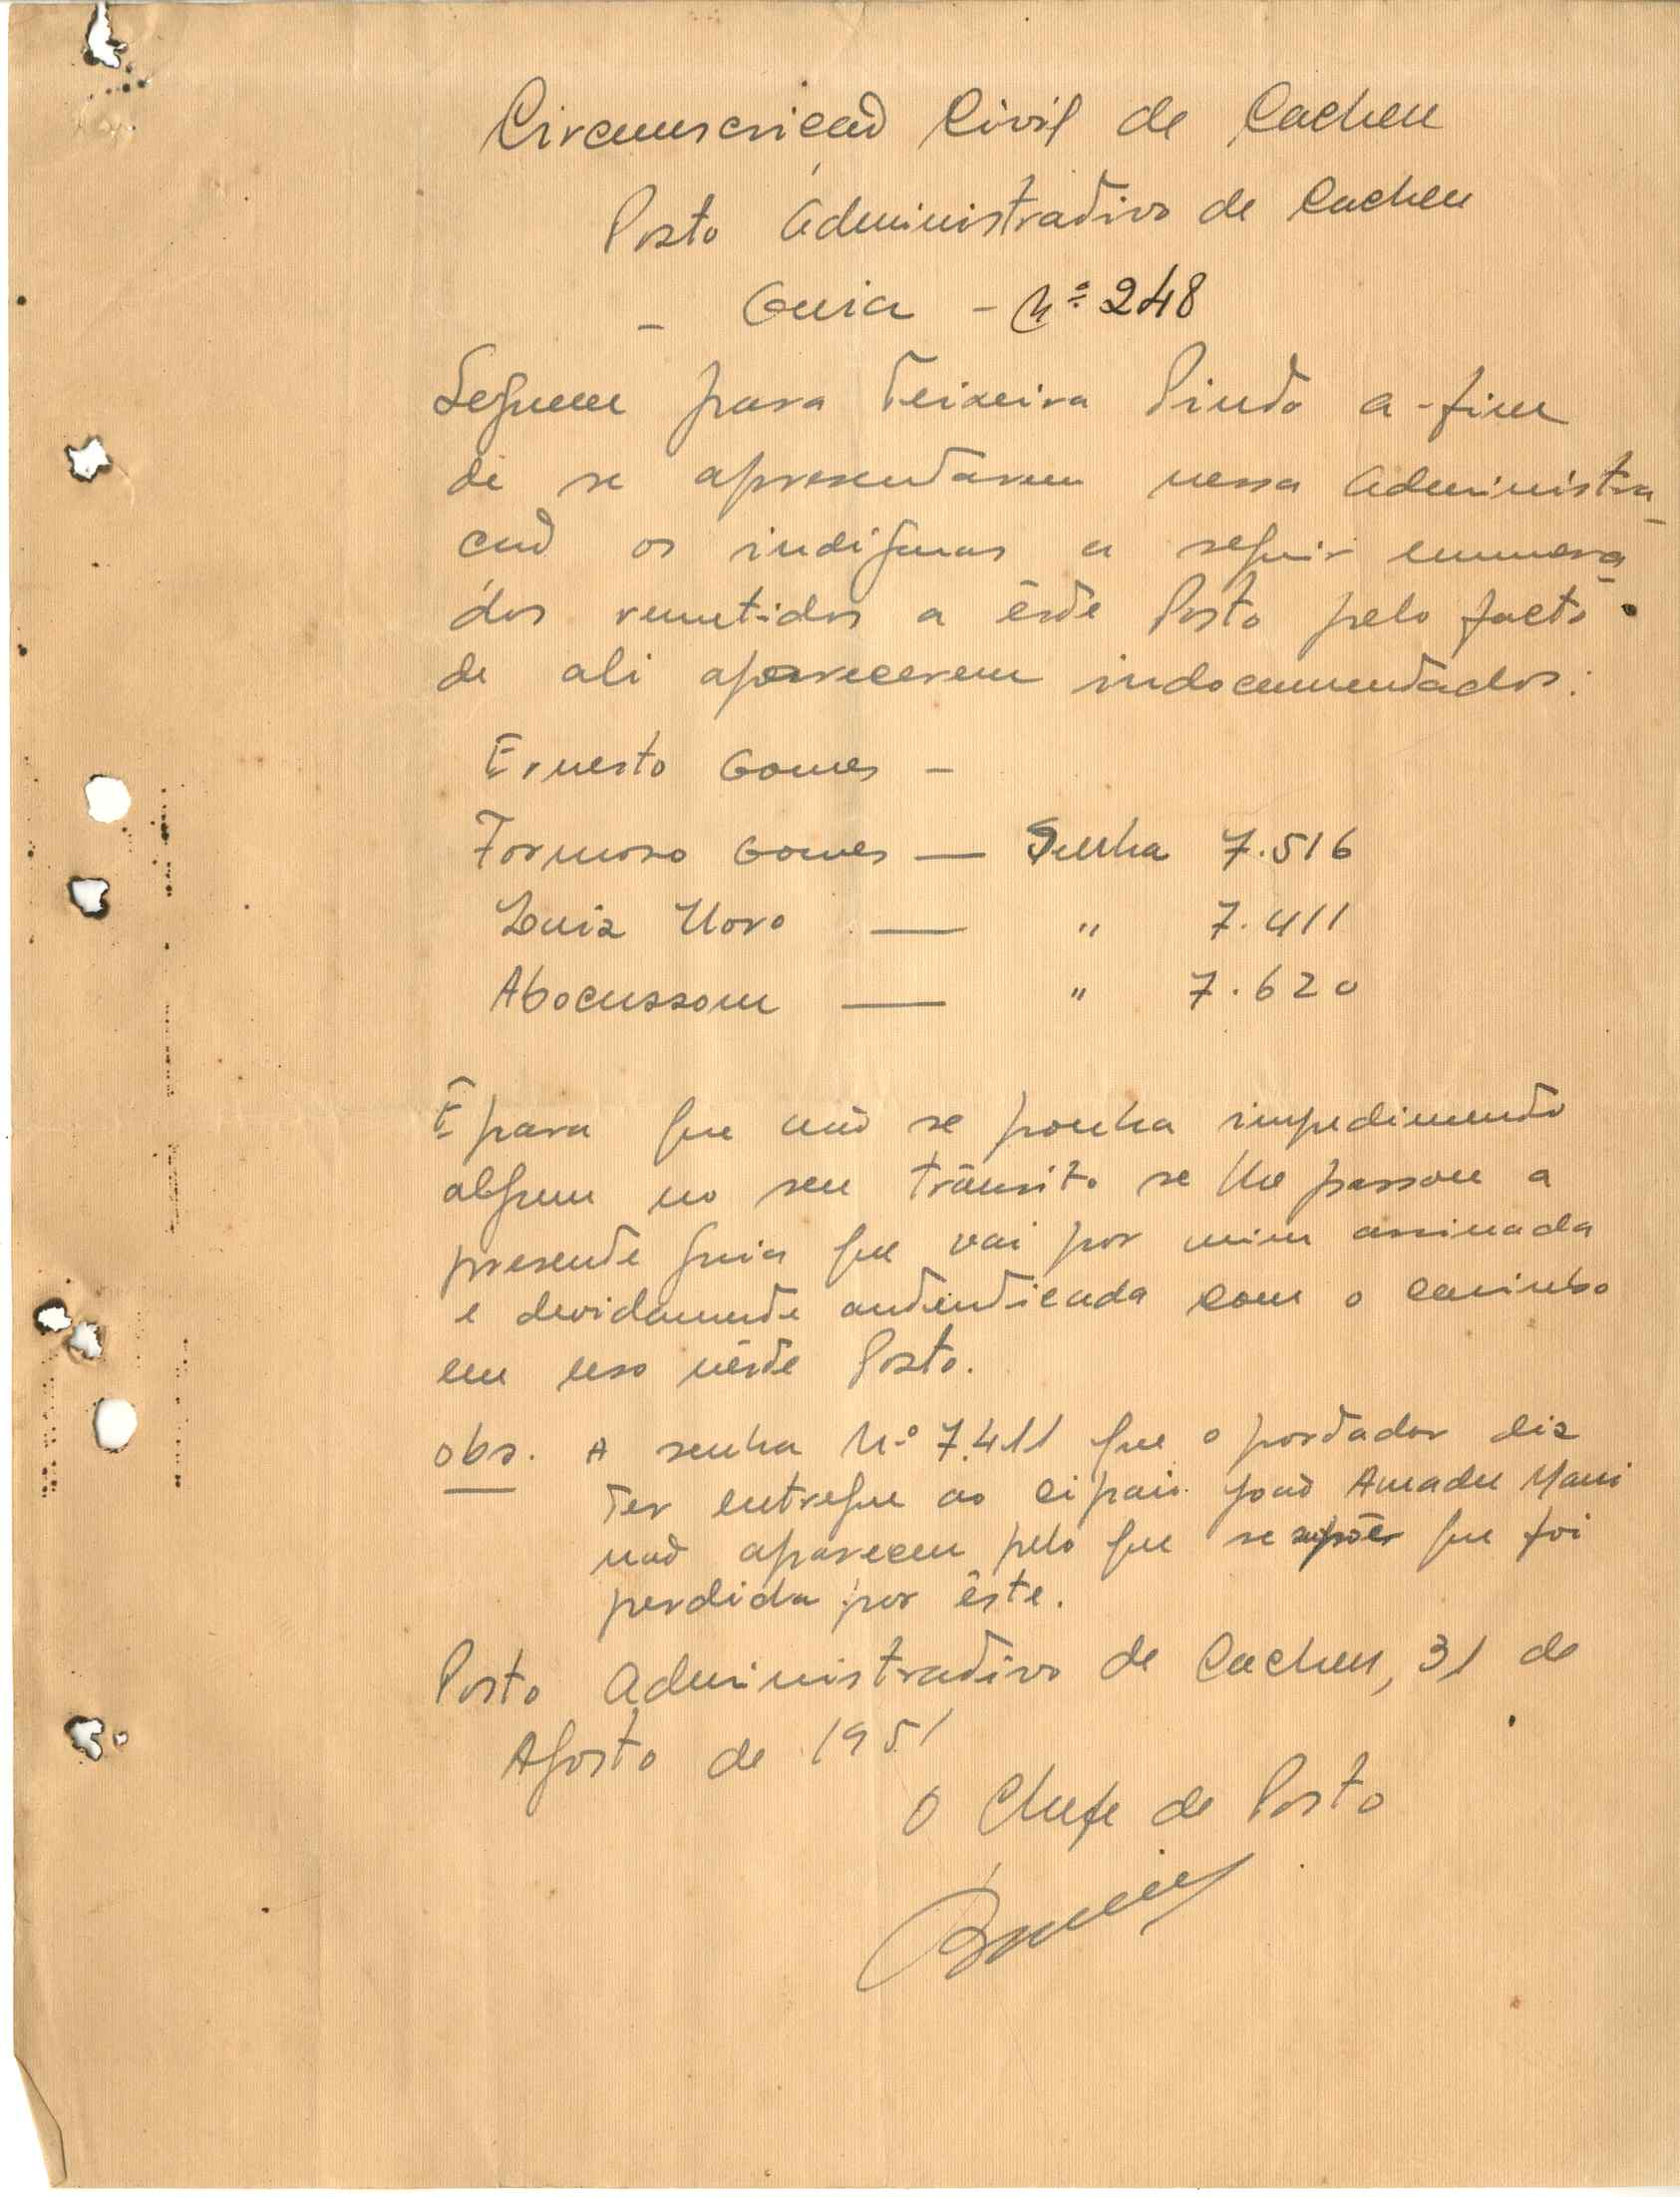 Circunscrição Civil de Cacheu
Posto Administrativo de Cacheu
- Guia - Nº 248
Seguem para Teixeira Pinto a-fim
de se apresentarem nessa Administra_
ção os indígenas a seguir enumera_
dos remetidos a êste Posto pelo facto
de ali aparecerem indocumentados:
Ernesto Gomes -
Formoso Gomes — Senha 7.516
Luiz Horo — " 7.411
Abocussom — " 7.620
E para que não se ponha impedimento
algum no seu trânsito se lhe passou a
presente guia que vai por mim assinada
e devidamente autenticada com o carimbo
em uso nêste Posto.
obs. A senha N.º 7.411 que o portador diz
ter entregue ao cipaio João Amadu Mani
não apareceu pelo que se supõe que foi
perdida por êste.
Posto Administrativo de Cacheu, 31 de
Agosto de 1951
O Chefe de Posto